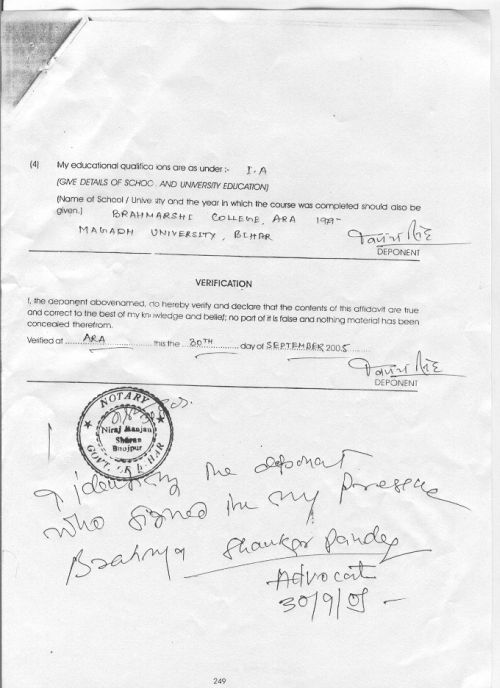 (4) My educational qualifica ions are as under :- I.A
(GIVE DETAILS OF SCHOO AND UNIVERSITY EDUCATION)
(Name of School / Unive sity and the year in which the course was completed should also be
given.) BRAHMARSHI COLLEGE, ARA
MAGADH UNIVERSITY, BIHAR
DEPONENT
VERIFICATION
I, the deponent abovenamed, do hereby verify and declare that the contents of this affidavit are true
and correct to the best of my knowledge and belief; no part of it is false and nothing material has been
concealed therefrom.
Verified at ARA this the 30TH day of SEPTEMBER, 2005
DEPONENT
NOTARY
Niraj Manjan
Sharan
Bhojpur
GOVT. OF BIHAR
I identify the deponent
who signed in my presence
Brahmya Shankar Pandey
Advocate
30/9/05
249